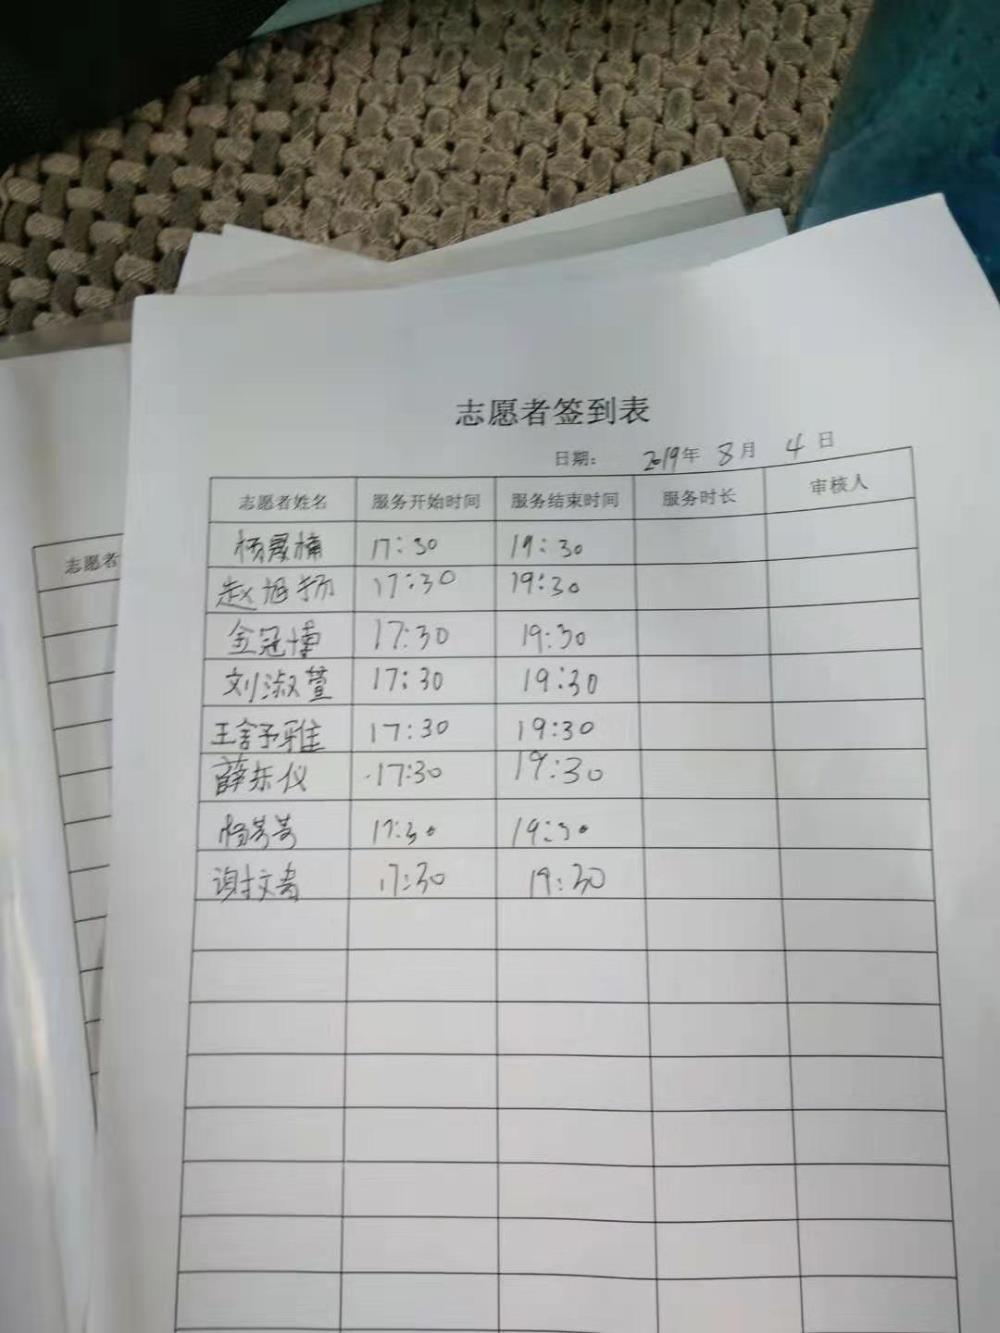 志愿者签到表
日期: 2019年 8月 4日
志愿者姓名 服务开始时间 服务结束时间 服务时长 审核人
杨晟楠 17:30 19:30
赵旭扬 17:30 19:30
金冠博 17:30 19:30
刘淑萱 17:30 19:30
王舍予雅 17:30 19:30
薛乐仪 17:30 19:30
杨芳芳 17:30 19:30
谢 17:30 19:30
志愿者